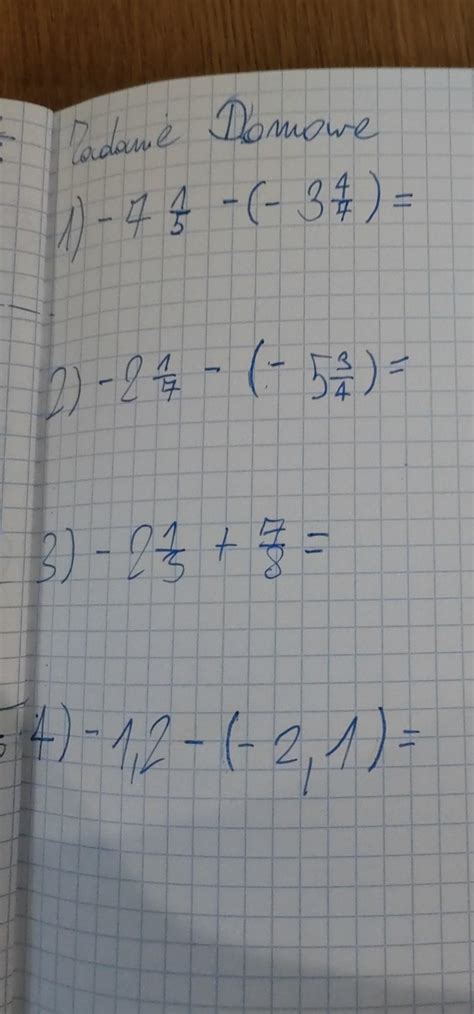 Zadanie Domowe
1) -7 1/5 - (-3 4/7) =
2) -2 1/7 - (-5 3/4) =
3) -2 1/3 + 7/8 =
4) -1,2 - (-2,1) =